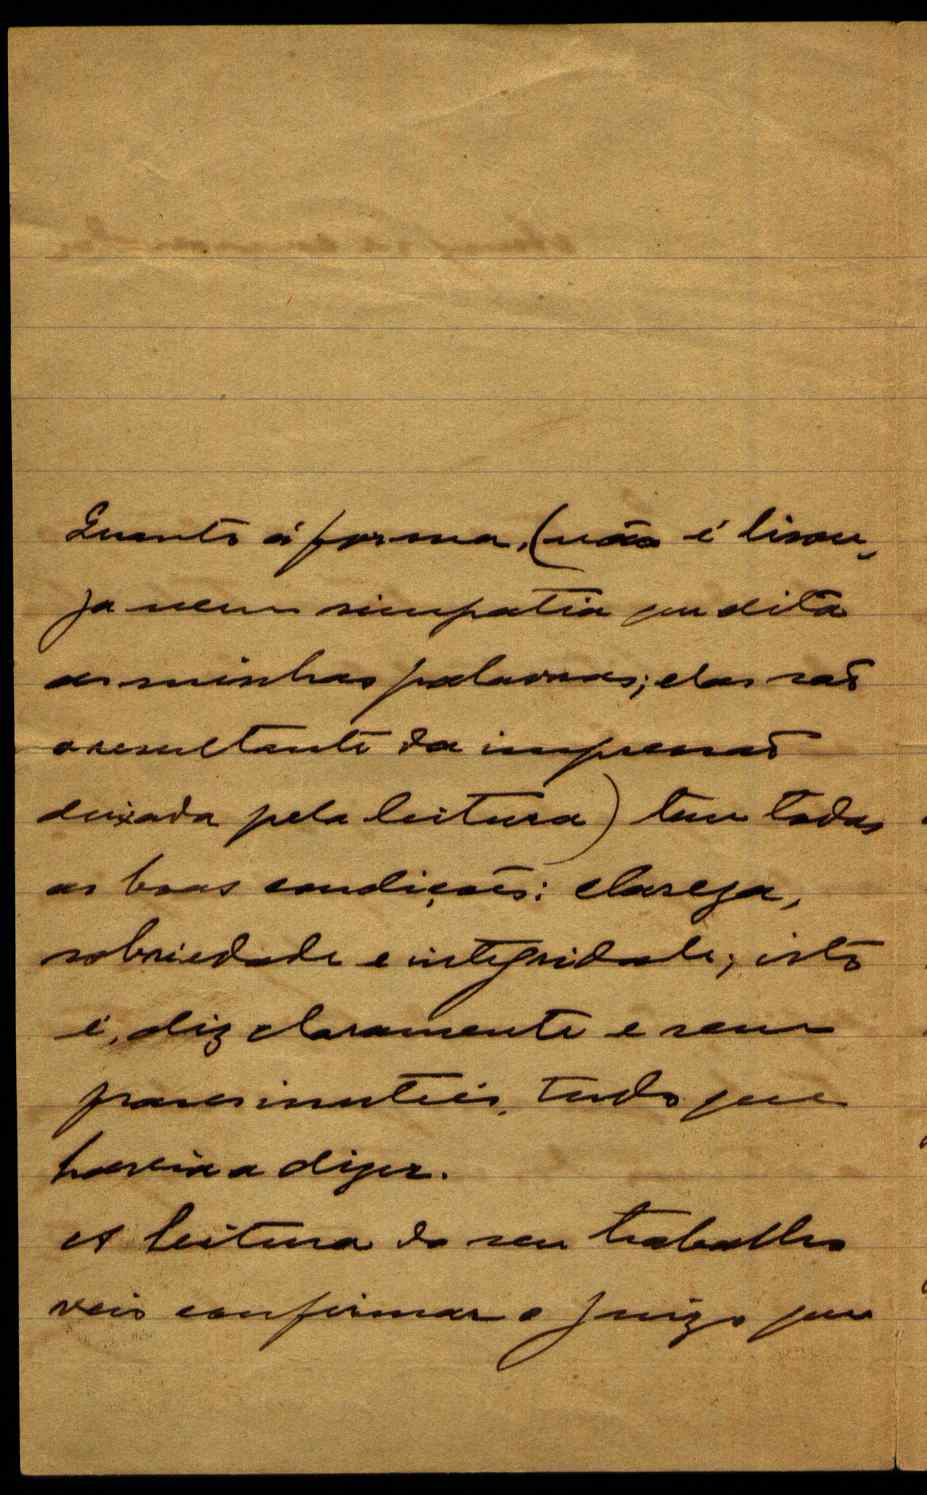 Quanto á forma, (não é lison-
ja nem simpatia que dita
as minhas palavras; elas são
o resultante da impressão
deixada pela leitura) tem todas
as boas condições: clareza,
sobriedade e integridade; isto
é, diz claramente e sem
frases inuteis, tudo que
havia a dizer.
A leitura do seu trabalho
veio confirmar o juizo que